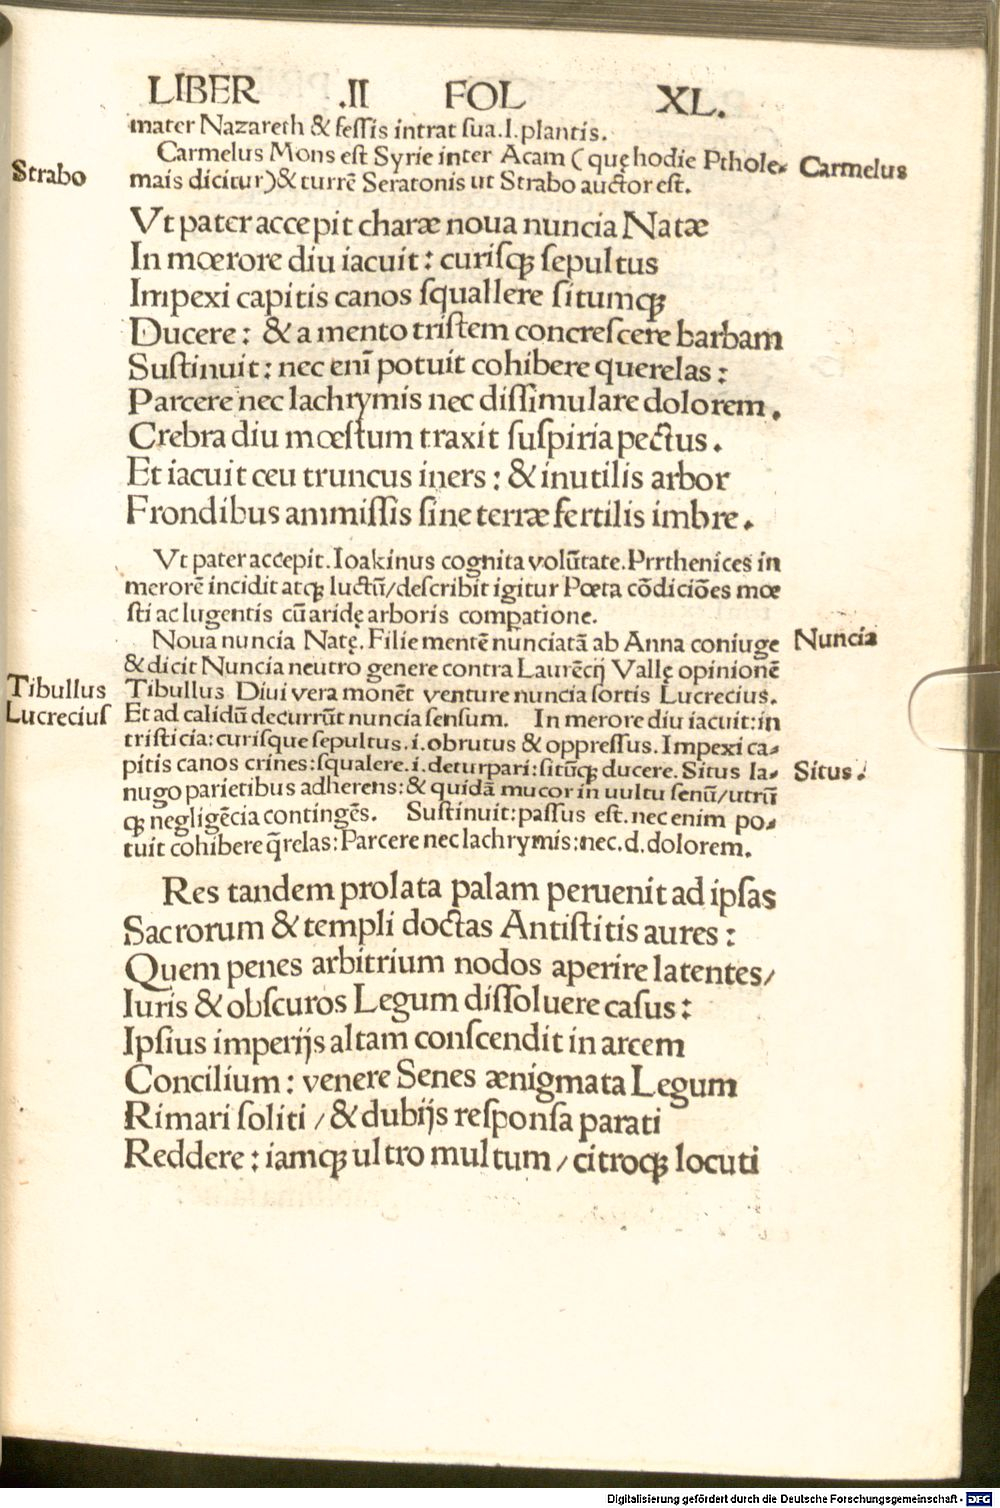 LIBER .II FOL XL.
mater Nazareth & feſſis intrat ſua.I.plantis.
Carmelus Mons eſt Syrie inter Acam (quę hodie Pthole⸗ Carmelus
Strabo mais dicitur)& turrē Seratonis ut Strabo auctor eſt.
Vt pater accepit charæ noua nuncia Natæ
In mœrore diu iacuit: curiſqꝫ ſepultus
Impexi capitis canos ſquallere ſitumqꝫ
Ducere: & a mento triſtem concreſcere barbam
Suſtinuit: nec enī potuit cohibere querelas:
Parcere nec lachrymis nec diſſimulare dolorem.
Crebra diu mœſtum traxit ſuſpiria pectus.
Et iacuit ceu truncus iners: & inutilis arbor
Frondibus ammiſſis ſine terræ fertilis imbre.
Vt pater accepit. Ioakinus cognita volūtate. Prrthenices in
merorē incidit atqꝫ luctū/deſcribit igitur Pœta cōdiciōes mœ
ſti ac lugentis cū aridę arboris compatione.
Noua nuncia Natę. Filie mentē nunciatā ab Anna coniuge Nuncia
& dicit Nuncia neutro genere contra Laurēcij Vallę opinionē
Tibullus Tibullus Diui vera monēt venture nuncia ſortis Lucrecius.
Lucreciuſ Et ad calidū decurrūt nuncia ſenſum. In merore diu iacuit:in
triſticia:curiſque ſepultus.i.obrutus & oppreſſus. Impexi ca⸗
pitis canos crines:ſqualere.i.deturpari:ſitūqꝫ ducere. Situs la⸗ Situs.
nugo parietibus adherens:& quidā mucor in uultu ſenū/utrū
qꝫ negligēcia contingēs. Suſtinuit:paſſus eſt. nec enim po⸗
tuit cohibere q̄relas: Parcere nec lachrymis:nec.d.dolorem.
Res tandem prolata palam peruenit ad ipſas
Sacrorum & templi doctas Antiſtitis aures:
Quem penes arbitrium nodos aperire latentes/
Iuris & obſcuros Legum diſſoluere caſus:
Ipſius imperijs altam conſcendit in arcem
Concilium: venere Senes ænigmata Legum
Rimari ſoliti / & dubijs reſponſa parati
Reddere: iamqꝫ ultro multum / citroqꝫ locuti
Digitalisierung gefördert durch die Deutsche Forschungsgemeinschaft - DFG